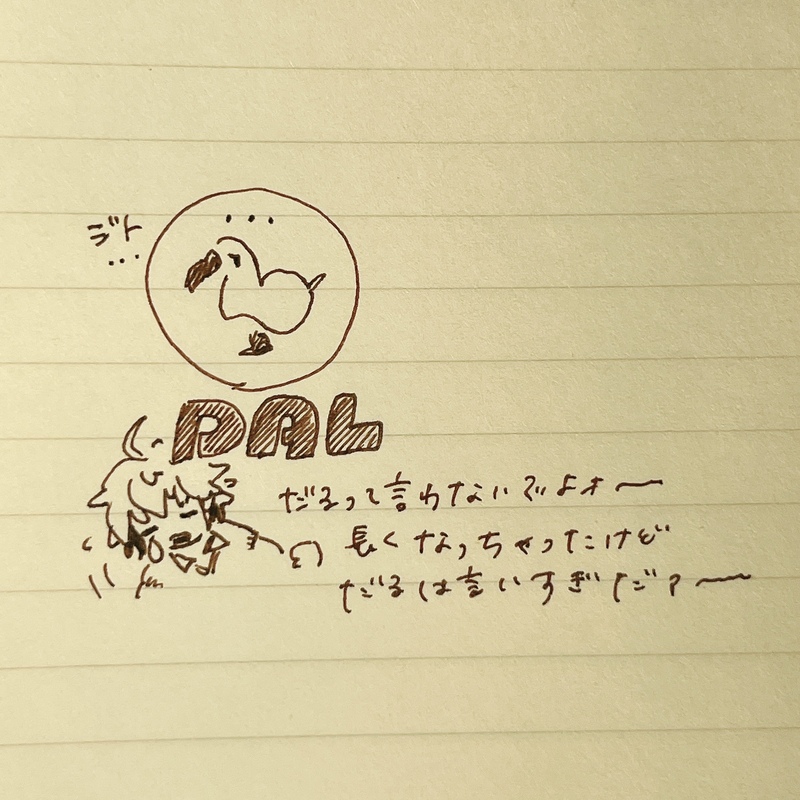 ジト
...
...
DAL
だるって言わないでよォ〜
長くなっちゃったけど
だるは言いすぎだァ〜